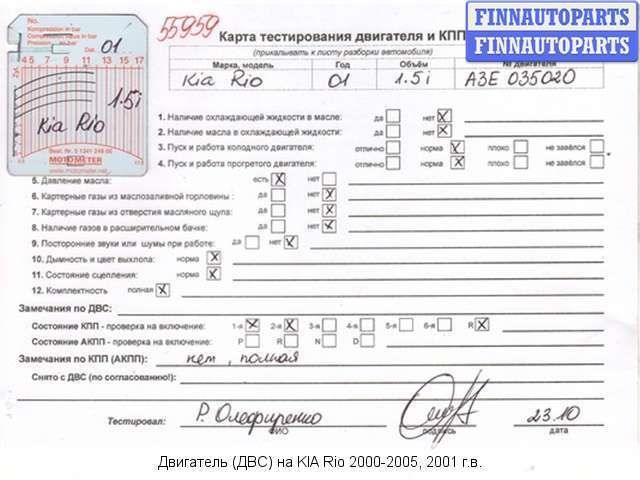 55959
Карта тестирования двигателя и КПП
FINNAUTOPARTS
FINNAUTOPARTS
(прикалывать к листу разборки автомобиля)
Марка, модель Год Объём № двигателя
Kia Rio 01 1.5i A3E 035020
Kompression in bar
Compression, value in bar
Pression
Dat. 01
4 5 7 9 11 13 15 17
1.5i
Kia Rio
4 5 7 9 11 13 15 17
MOTOMETER
www.motometer.net
1. Наличие охлаждающей жидкости в масле: да нет X
2. Наличие масла в охлаждающей жидкости: да нет X
3. Пуск и работа холодного двигателя: отлично норма X плохо не завёлся
4. Пуск и работа прогретого двигателя: отлично норма X плохо не завёлся
5. Давление масла: есть X нет
6. Картерные газы из маслозаливной горловины : да нет X
7. Картерные газы из отверстия масляного щупа: да нет X
8. Наличие газов в расширительном бачке: да нет X
9. Посторонние звуки или шумы при работе: да нет X
10. Дымность и цвет выхлопа: норма X
11. Состояние сцепления: норма X
12. Комплектность полная X
Замечания по ДВС:
Состояние КПП - проверка на включение: 1-я X 2-я X 3-я 4-я 5-я 6-я R X
Состояние АКПП - проверка на включение: P R N D
Замечания по КПП (АКПП): нет, полная
Снято с ДВС (по согласованию!):
Тестировал: Р. Олефиренко 23.10
ФИО подпись дата
Двигатель (ДВС) на KIA Rio 2000-2005, 2001 г.в.